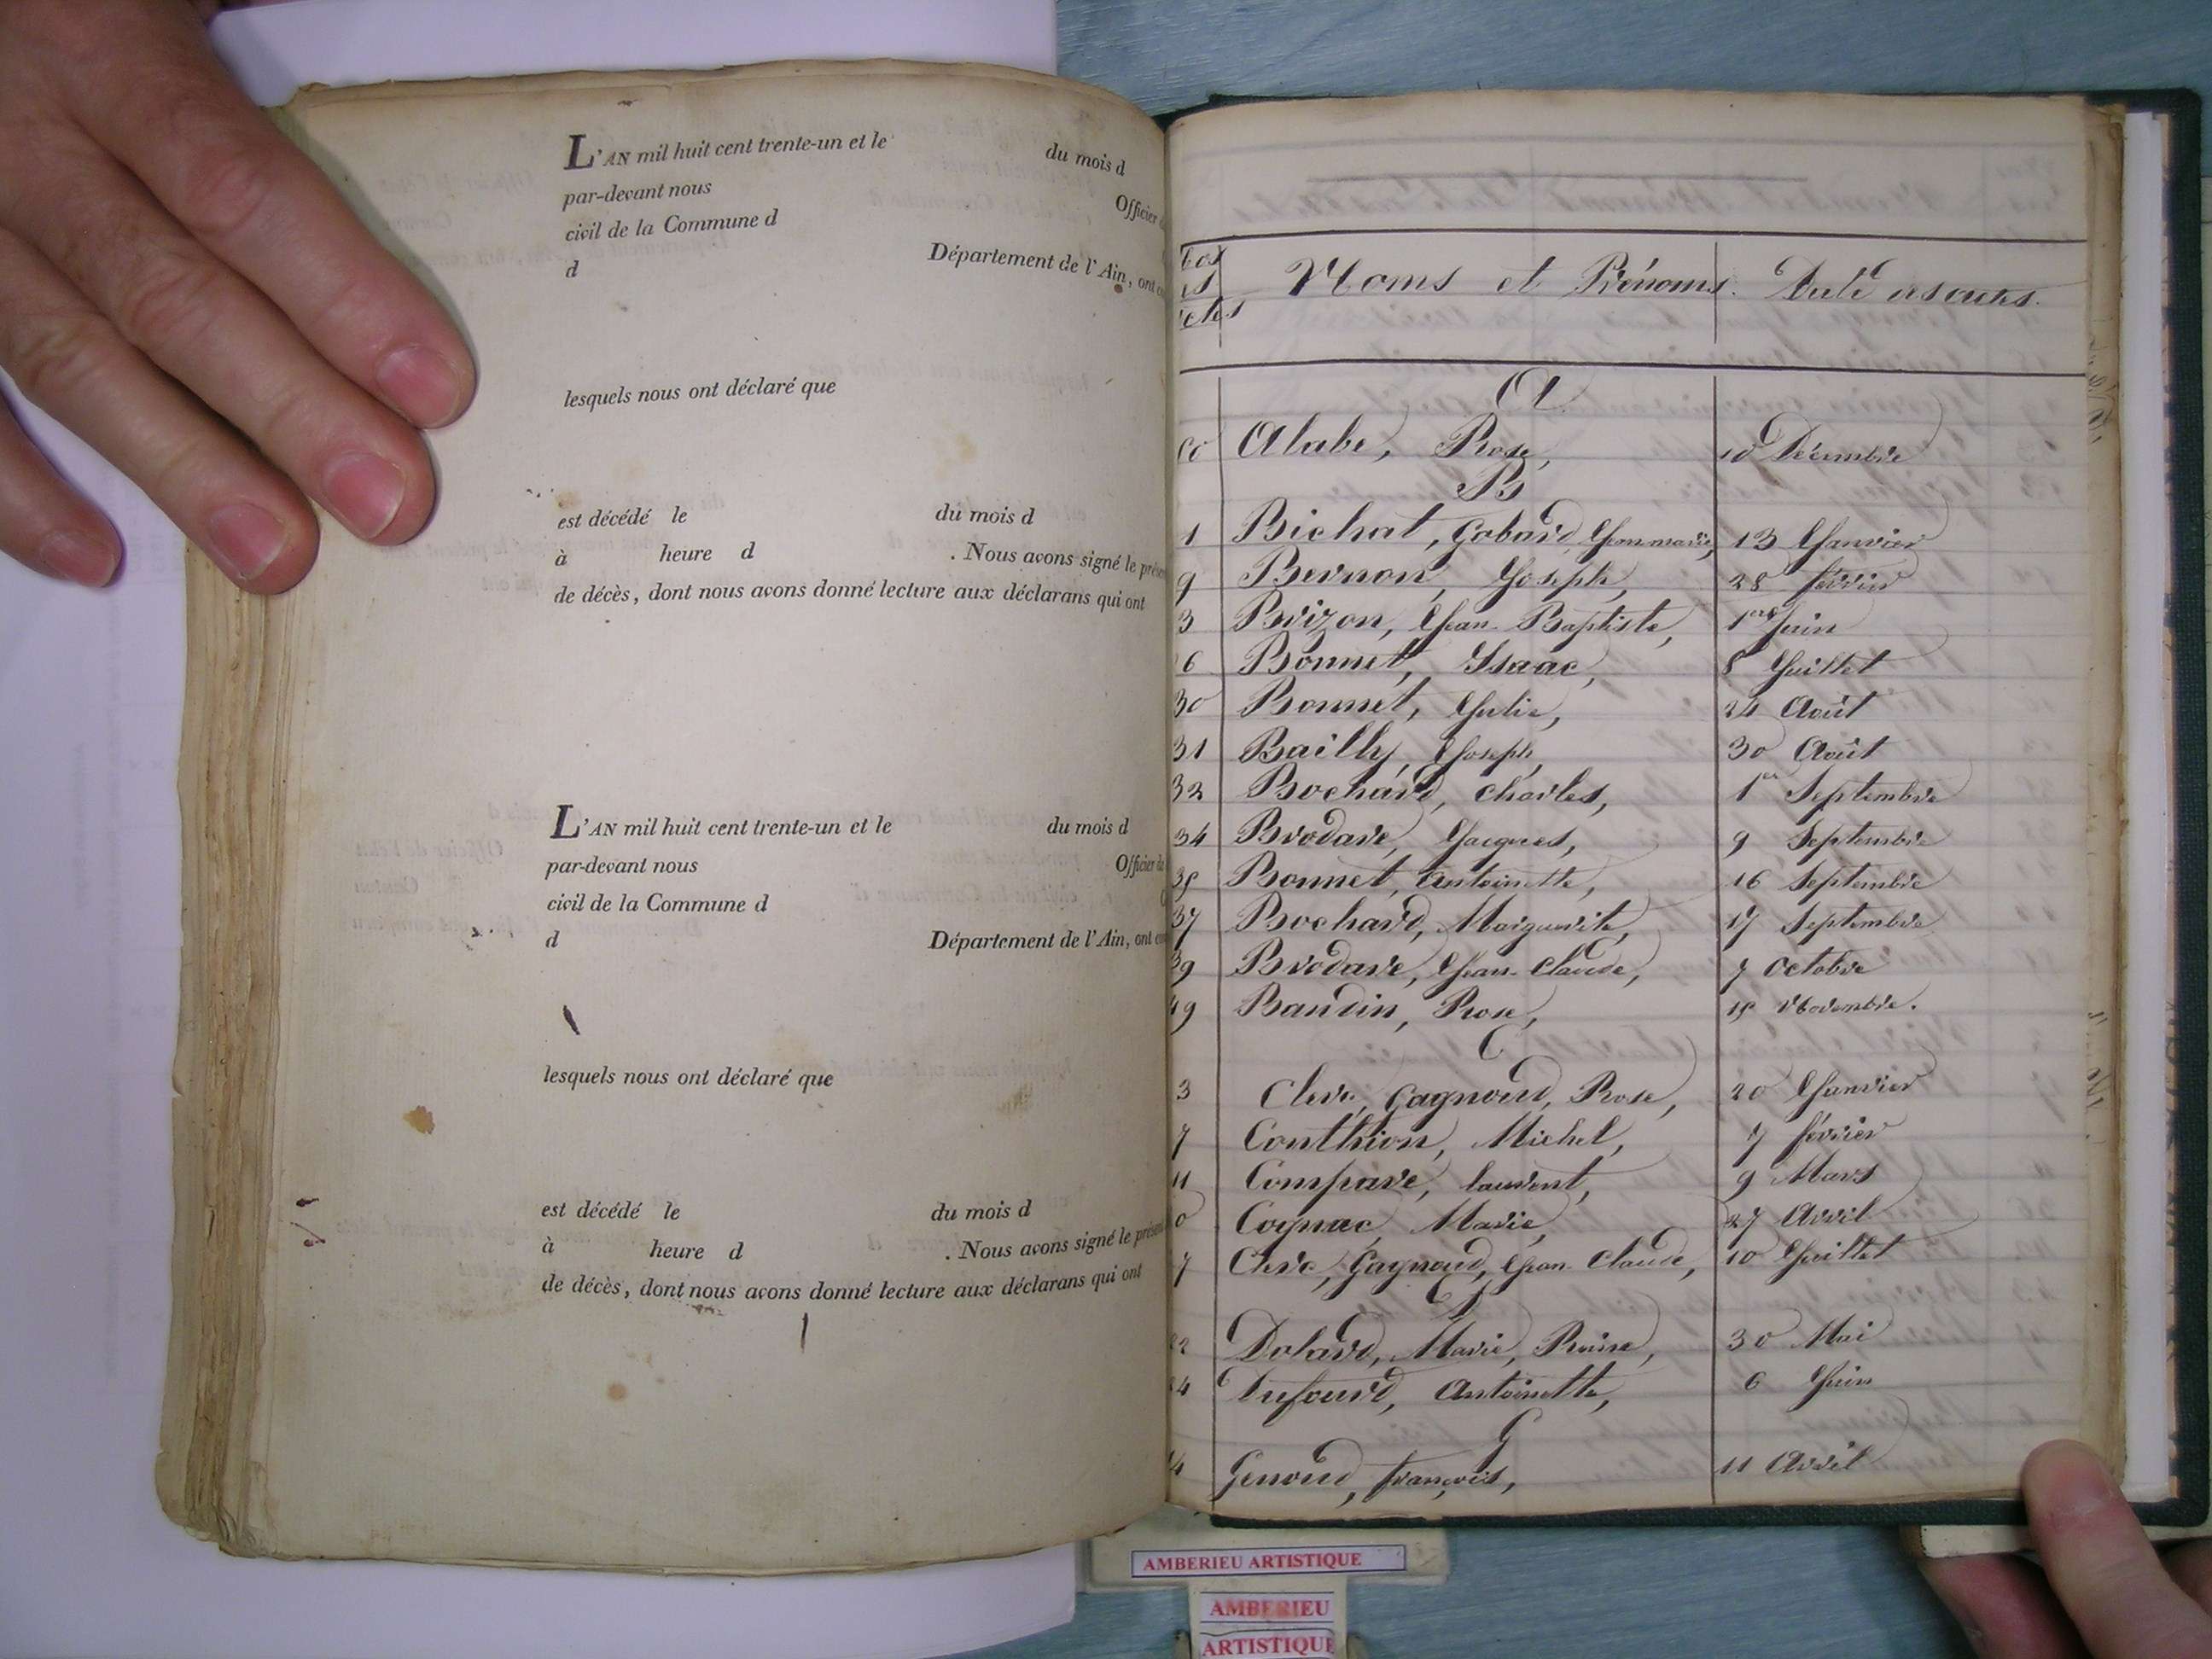 L'AN mil huit cent trente-un et le du mois d
par-devant nous Officier
civil de la Commune d
d Département de l'Ain, ont
lesquels nous ont déclaré que
est décédé le du mois d
à heure d . Nous avons signé le
de décès, dont nous avons donné lecture aux déclarans qui ont
L'AN mil huit cent trente-un et le du mois d
par-devant nous Officier
civil de la Commune d
d Département de l'Ain, ont
lesquels nous ont déclaré que
est décédé le du mois d
à heure d . Nous avons signé le
de décès, dont nous avons donné lecture aux déclarans qui ont
Noms et Prénoms. Date
A
Alabe, Rose, 10 Décembre
B
1 Bichat, Gobard, Jeanmarie, 13 Janvier
9 Bernon, Joseph, 28 février
3 Brizon, Jean-Baptiste, 1er Juin
6 Bonnet, Isaac, 8 Juillet
30 Bonnet, Julie, 24 Août
31 Bailly, Joseph, 30 Août
32 Bochard, charles, 1er Septembre
34 Brodare, Jacques, 9 Septembre
35 Bonnet, antoinette, 16 Septembre
37 Bochard, Marguerite, 17 Septembre
39 Brodare, Jean-Claude, 7 octobre
49 Baudin, Rose, 15 Novembre.
C
3 Clerc, Gagnoud, Rose, 20 Janvier
7 Conthion, Michel, 7 février
11 Compare, laurent, 9 Mars
0 Cognac, Marie, 27 Avril
7 Clerc, Gagnoud, Jean-Claude, 10 Juillet
Dolard, Marie, 30 Mai
Dufourd, Antoinette, 6 Juin
G
Genoud, françois, 11 Avril
AMBERIEU ARTISTIQUE
AMBERIEU
ARTISTIQUE